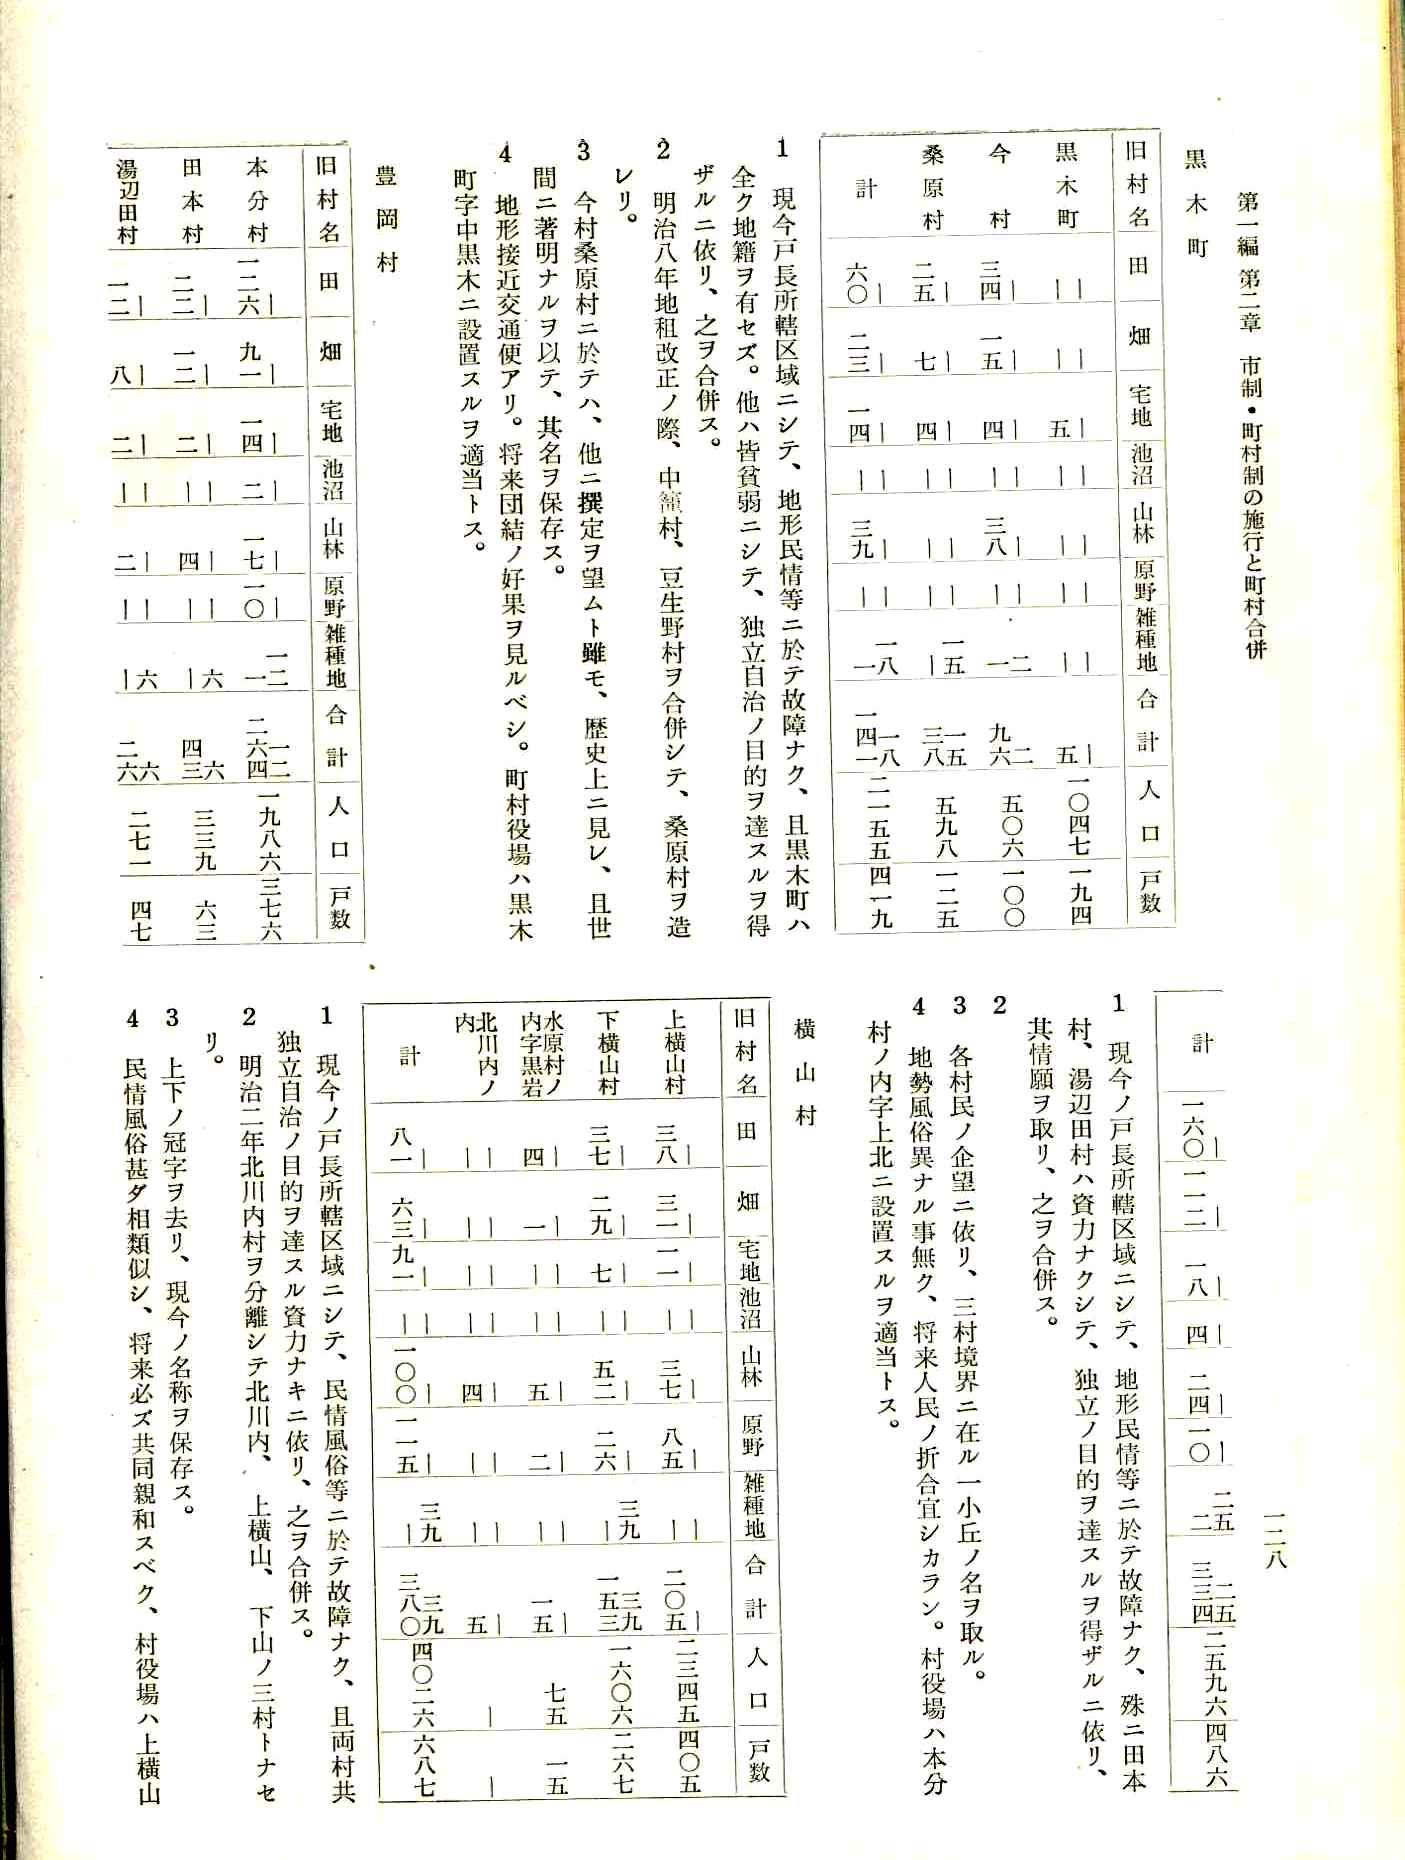 第一編 第二章 市制・町村制の施行と町村合併
一二八
黒木町
旧村名 田 畑 宅地 池沼 山林 原野 雑種地 合計 人口 戸数
黒木町 ｜｜ ｜｜ 五｜ ｜｜ ｜｜ ｜｜ ｜｜ 五｜ 一〇四七 一九四
今村 三四｜ 一五｜ 四｜ ｜｜ 三八｜ ｜｜ 一二 九六二 五〇六 一〇〇
桑原村 二五｜ 七｜ 四｜ ｜｜ ｜｜ ｜｜ 一五｜ 三八一五 五九八 一二五
計 六〇｜ 二三｜ 一四｜ ｜｜ 三九｜ ｜｜ 一一八 一四一一八 二一五五 四一九
1 現今戸長所轄区域ニシテ、地形民情等ニ於テ故障ナク、且黒木町ハ
全ク地籍ヲ有セズ。他ハ皆貧弱ニシテ、独立自治ノ目的ヲ達スルヲ得
ザルニ依リ、之ヲ合併ス。
2 明治八年地租改正ノ際、中籠村、豆生野村ヲ合併シテ、桑原村ヲ造
レリ。
3 今村桑原村ニ於テハ、他ニ撰定ヲ望ムト雖モ、歴史上ニ見レ、且世
間ニ著明ナルヲ以テ、其名ヲ保存ス。
4 地形接近交通便アリ。将来団結ノ好果ヲ見ルベシ。町村役場ハ黒木
町字中黒木ニ設置スルヲ適当トス。
豊岡村
旧村名 田 畑 宅地 池沼 山林 原野 雑種地 合計 人口 戸数
本分村 一二六｜ 九一｜ 一四｜ 二｜ 一七｜ 一〇｜ 一一二 二六四一二 一九八六 三七六
田本村 二二｜ 一二｜ 二｜ ｜｜ 四｜ ｜｜ ｜六 四三六 三三九 六三
湯辺田村 一二｜ 八｜ 二｜ ｜｜ 二｜ ｜｜ ｜六 二六六 二七一 四七
計 一六〇｜ 一一二｜ 一八｜ 四｜ 二四｜ 一〇｜ 二二五 三三四二五 二五九六 四八六
1 現今ノ戸長所轄区域ニシテ、地形民情等ニ於テ故障ナク、殊ニ田本
村、湯辺田村ハ資力ナクシテ、独立ノ目的ヲ達スルヲ得ザルニ依リ、
其情願ヲ取リ、之ヲ合併ス。
2
3 各村民ノ企望ニ依リ、三村境界ニ在ル一小丘ノ名ヲ取ル。
4 地勢風俗異ナル事無ク、将来人民ノ折合宜シカラン。村役場ハ本分
村ノ内字上北ニ設置スルヲ適当トス。
横山村
旧村名 田 畑 宅地 池沼 山林 原野 雑種地 合計 人口 戸数
上横山村 三八｜ 三一｜ 一一｜ ｜｜ 三七｜ 八五｜ ｜｜ 二〇五｜ 二三四五 四〇五
下横山村 三七｜ 二九｜ 七｜ ｜｜ 五二｜ 二六｜ ｜三九 一五三三九 一六〇六 二六七
水原村ノ内字黒岩 四｜ 一｜ ｜｜ ｜｜ 五｜ 二｜ ｜｜ 一五｜ 七五 一五
北川内ノ内 ｜｜ ｜｜ ｜｜ ｜｜ 四｜ ｜｜ ｜｜ 五｜ ｜ ｜
計 八一｜ 六三｜ 九一｜ ｜｜ 一〇〇｜ 一一五｜ ｜三九 三八〇三九 四〇二六 六八七
1 現今ノ戸長所轄区域ニシテ、民情風俗等ニ於テ故障ナク、且両村共
独立自治ノ目的ヲ達スル資力ナキニ依リ、之ヲ合併ス。
2 明治二年北川内村ヲ分離シテ北川内、上横山、下山ノ三村トナセ
リ。
3 上下ノ冠字ヲ去リ、現今ノ名称ヲ保存ス。
4 民情風俗甚ダ相類似シ、将来必ズ共同親和スベク、村役場ハ上横山